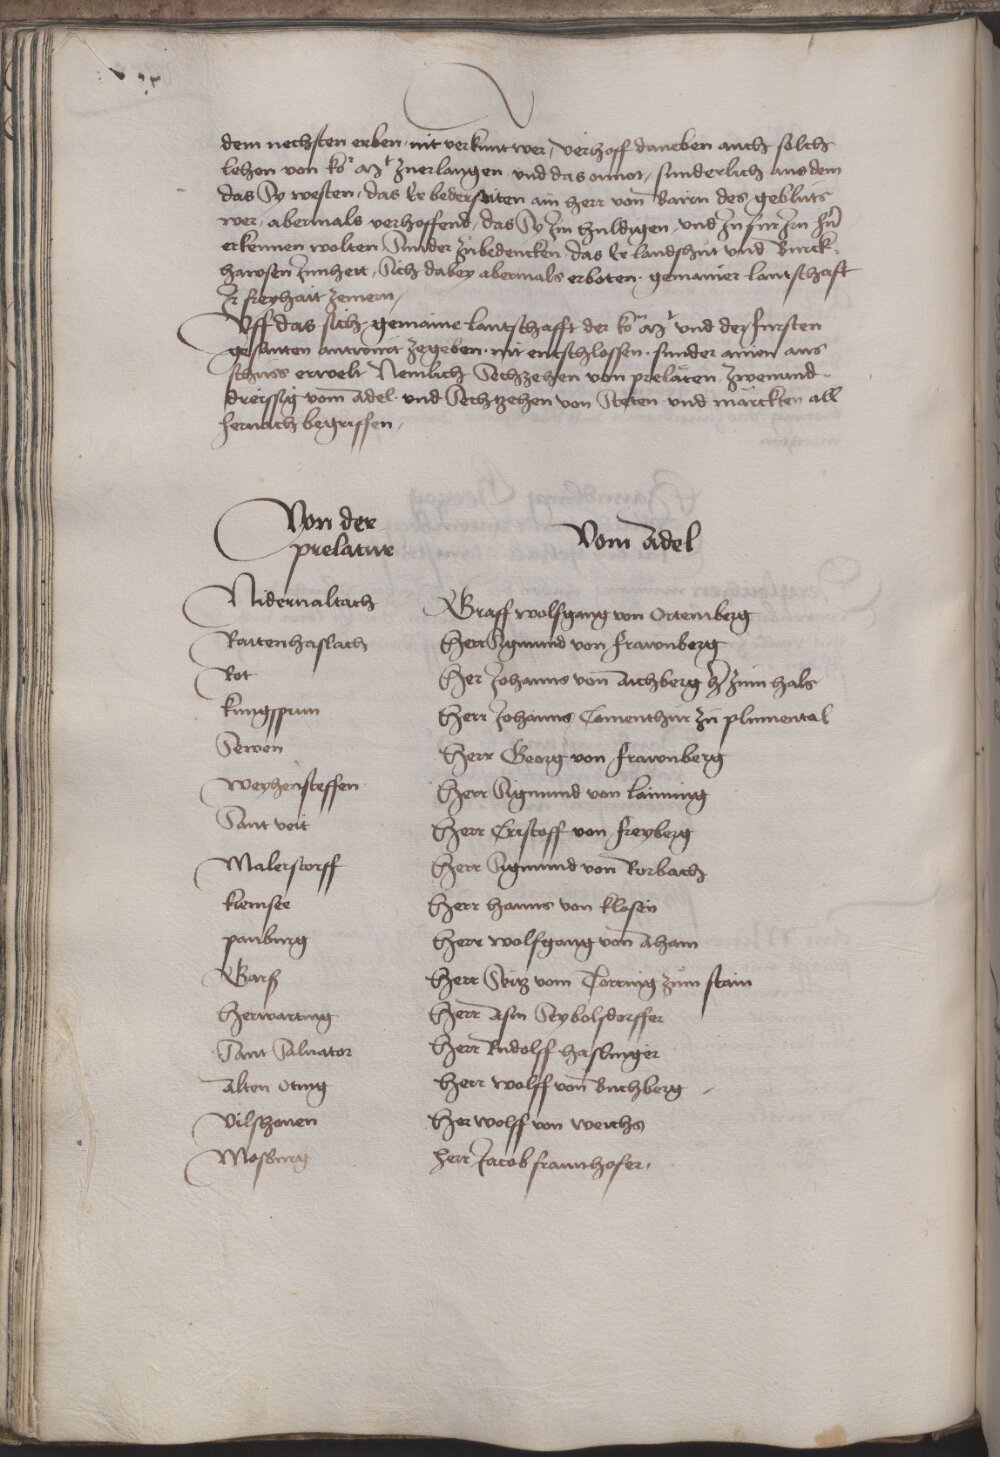 dem nechsten erben nit verkunt wer, verhoff daneben auch solch
lehen von ko. Mt zuerlangen vnd das onnot, sunderlich aus dem
das Sy westen, das Er bederseiten ain herr von Bairn des gebluts
wer, abermals verhoffend, das Sy Im huldigen, vnd In fur Irn hern
erkennen wolten Sunder zubedencken, das Er landshut vnd Burck-
hawsen Innhett, Sich dabey abermals erboten gemainer lantschaft
Ir freyhait zemern,
Vff das sich gemaine lantschafft der ko. Mt vnd der fursten
gesanten antwurt zegeben nit entschlossen sunder ainen aus
schuss erwelt Nemlich Sechzehen von prelaten, zwenund-
dreissig vom Adel vnd Sechtzehen von Steten vnd märckten all
hernach begriffen,
Von der
prelatur
Vom Adel
Nidernaltach
Graff wolfgang von Ortemberg
Raitenhaslach
Herr Sigmund von frawnberg
Rot
Her Johanns von Aichberg h zum hals
kungsprun
Herr Johanns Comenthur zu plumental
Sewen
Herr Georg von frawnberg
weyhensteffen
Herr Sigmund von laiming
Sant veit
Herr Cristoff von freyberg
Malerstorff
Herr Sigmund von Rorbach
kiemsee
Herr hanns von klosen
panburg
Herr wolfgang von Aham
Garss
Herr Seitz vom Torring zum stain
Herwarting
Herr Asm Seybolsdorffer
Sant Saluator
Herr Rudolff haslinger
Alten Oting
Herr wolff von Buchberg
Vilshouen
Her wolff von weichs
Mosburg
Herr Jacob fraunhofer,